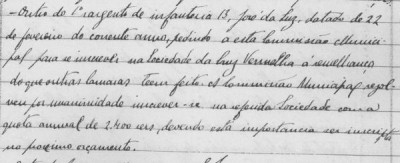 – Outro do 1º sargento de infanteria 13, José da Luz, datado de 22
de fevereiro do corrente anno, pedindo a esta Commissão Munici-
pal para se inscrever na Sociedade da Cruz Vermelha, à semelhança
do que outras Camaras teem feito. A Commissão Municipal resol-
veu por unanimidade inscrever-se na referida Sociedade com a
quota annual de 2.400 reis, devendo esta importancia ser inscripta
no proximo orçamento.